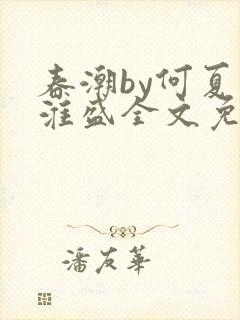 春潮by何夏
淮盛全文免
潘友华